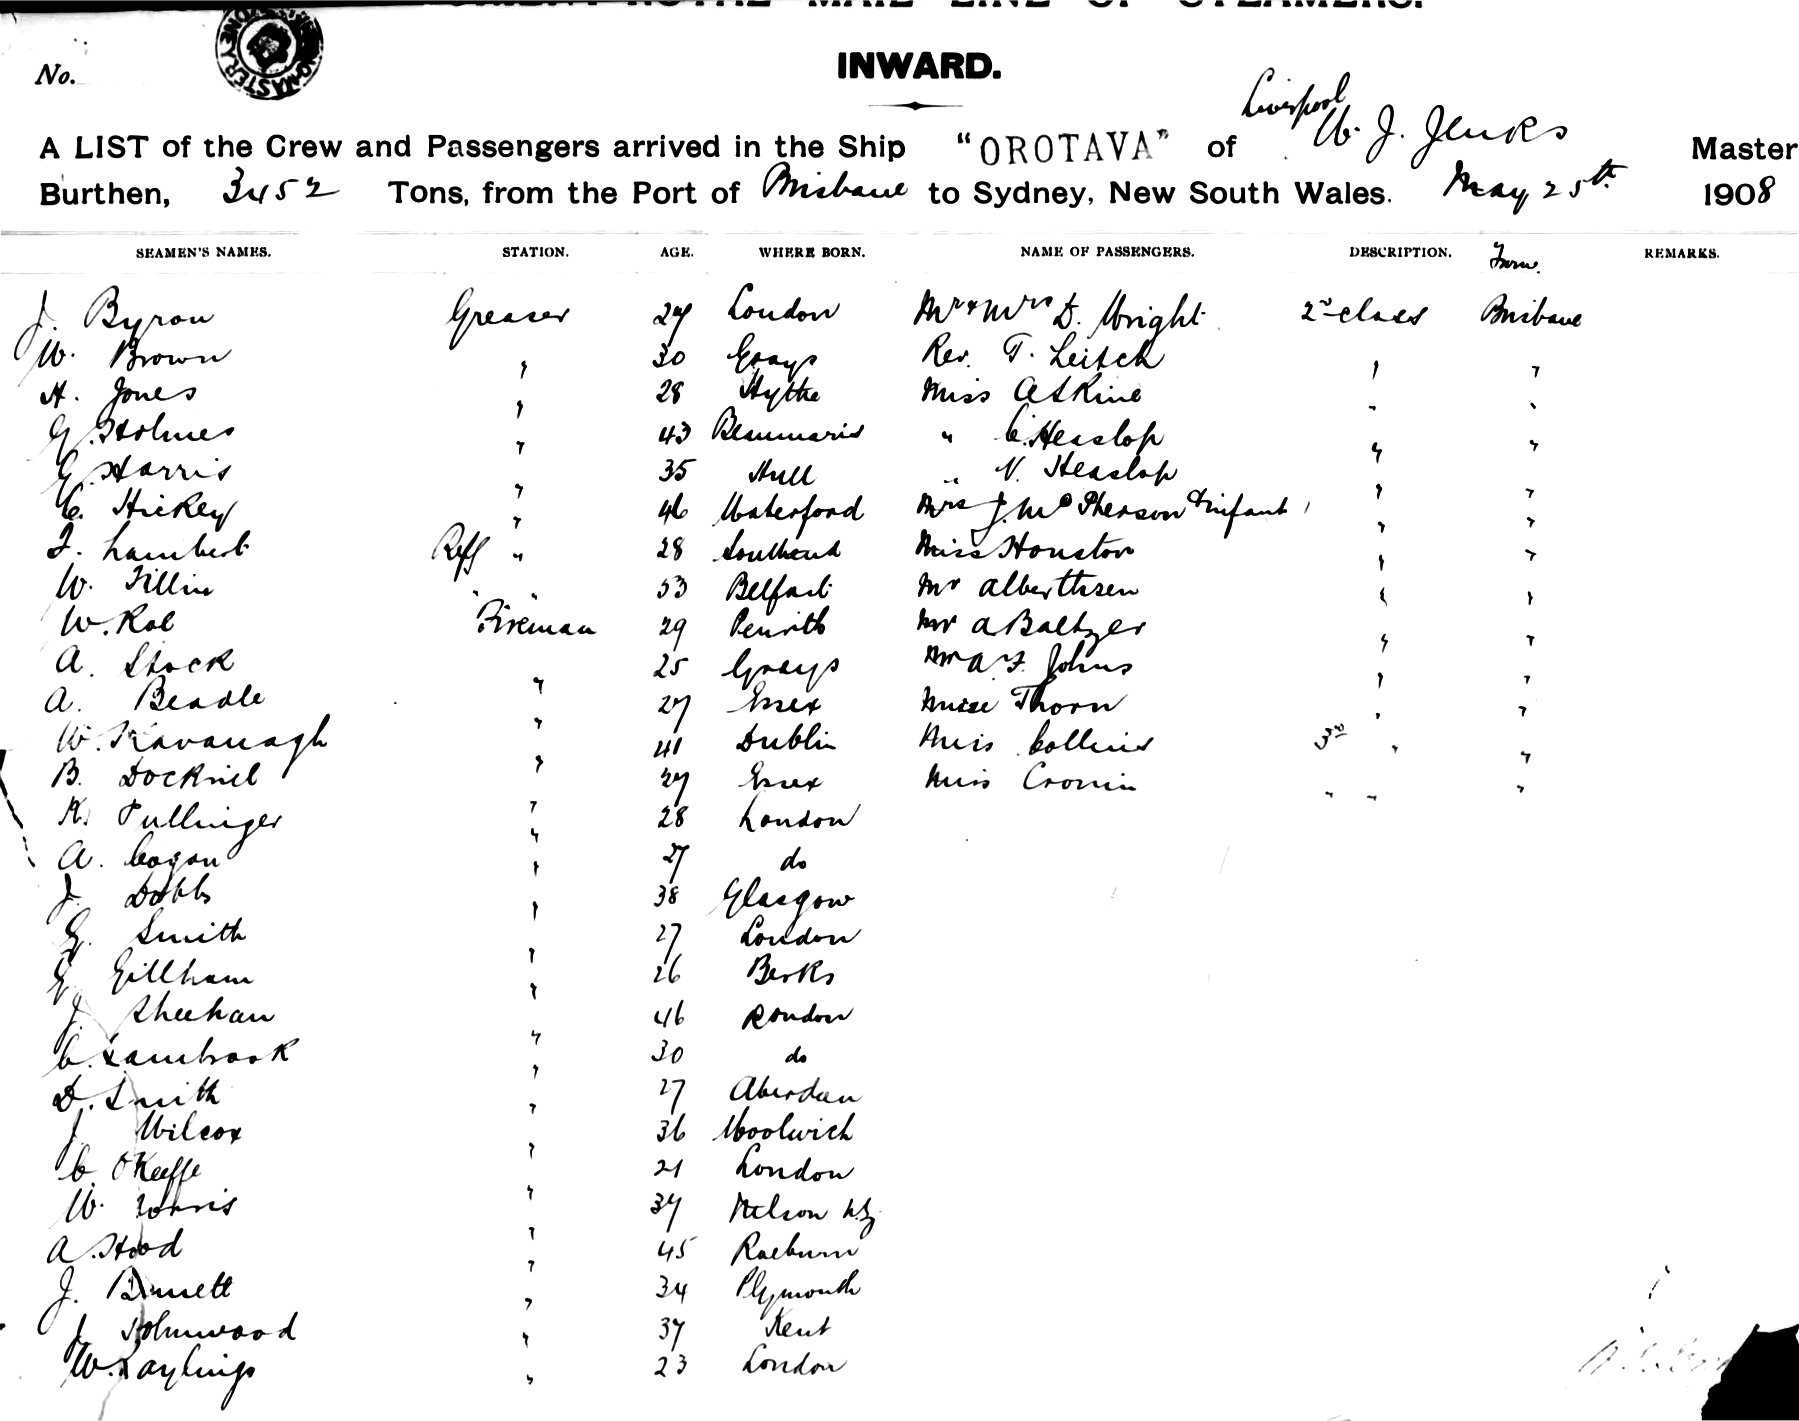 ORIENT-ROYAL MAIL LINE OF STEAMERS.
INWARD.
No.
Liverpool
A LIST of the Crew and Passengers arrived in the Ship "OROTAVA" of W. J. Jenks Master
Burthen, 3452 Tons, from the Port of Brisbane to Sydney, New South Wales. May 25th 1908
SEAMEN'S NAMES. STATION. AGE. WHERE BORN. NAME OF PASSENGERS. DESCRIPTION. From. REMARKS.
J. Byron Greaser 27 London Mr & Mrs D. Wright 2nd class Brisbane
W. Brown " 30 Grays Rev. T. Leitch " "
H. Jones " 28 Hythe Miss Askine " "
G. Holmes " 43 Beaumaris " C. Heaslop " "
G. Harris " 35 Hull " V. Heaslop " "
C. Hickey " 46 Waterford Mrs J. McPherson & infant " "
F. Lambert Refg " 28 Southend Miss Houston " "
W. Tillin " " 33 Belfast Mr Alberthsen " "
W. Roe Fireman 29 Penrith Mr A Baltzer " "
A. Stock " 25 Grays Mr A F. Johns " "
A. Beadle " 27 Essex Miss Thorn " "
W. Kavanagh " 41 Dublin Miss Collins 3rd " "
B. Docknil " 27 Essex Miss Cronin " " "
K. Pullinger " 28 London
A. Cogan " 27 do
J. Dobbs " 38 Glasgow
G. Smith " 27 London
G. Gillham " 26 Berks
J. Sheehan " 46 London
C. Sambrook " 30 do
D. Smith " 27 Aberdeen
J. Wilcox " 36 Woolwich
C. O'Keeffe " 21 London
W. Norris " 37 Nelson N.Z
A. Hood " 45 Raeburn
J. Bennett " 34 Plymouth
J. Holmwood " 37 Kent
W. Saylings " 23 London